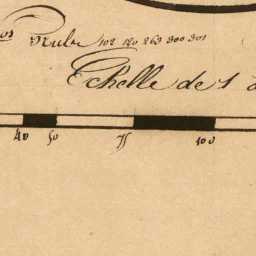 102 120 263 300 301
Echelle de 1
40 50 75 100